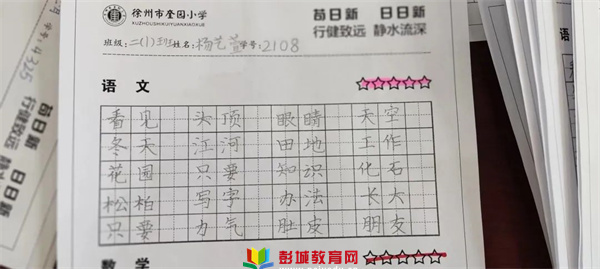 徐州市奎园小学
XUZHOUSHIKUIYUANXIAOXUE
苟日新 日日新
行健致远 静水流深
班级:二(1)班姓名:杨艺萱学号:2108
语文
看见 头顶 眼睛 天空
冬天 江河 田地 工作
花园 只要 知识 化石
松柏 写字 办法 长大
只要 力气 肚皮 朋友
数学
彭城教育网
学号:4325
苟日新
行健致远
日日新